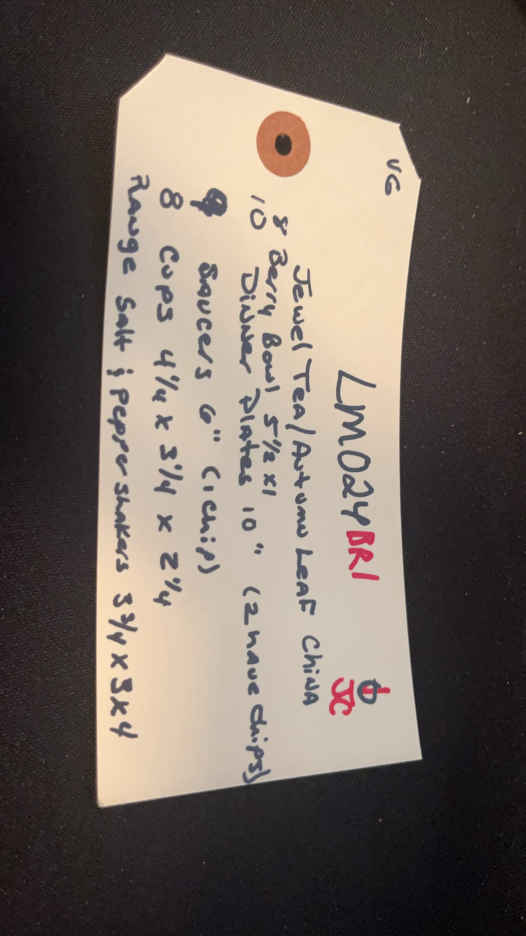 VG
LM024BRI
JC
Jewel Tea/Autumn Leaf China
8 Berry Bowl 5½ x 1
10 Dinner Plates 10" (2 have chips)
9 Saucers 6" (1 chip)
8 Cups 4¼ x 3¼ x 2¼
Range Salt & Pepper Shakers 3¾ x 3 x 4